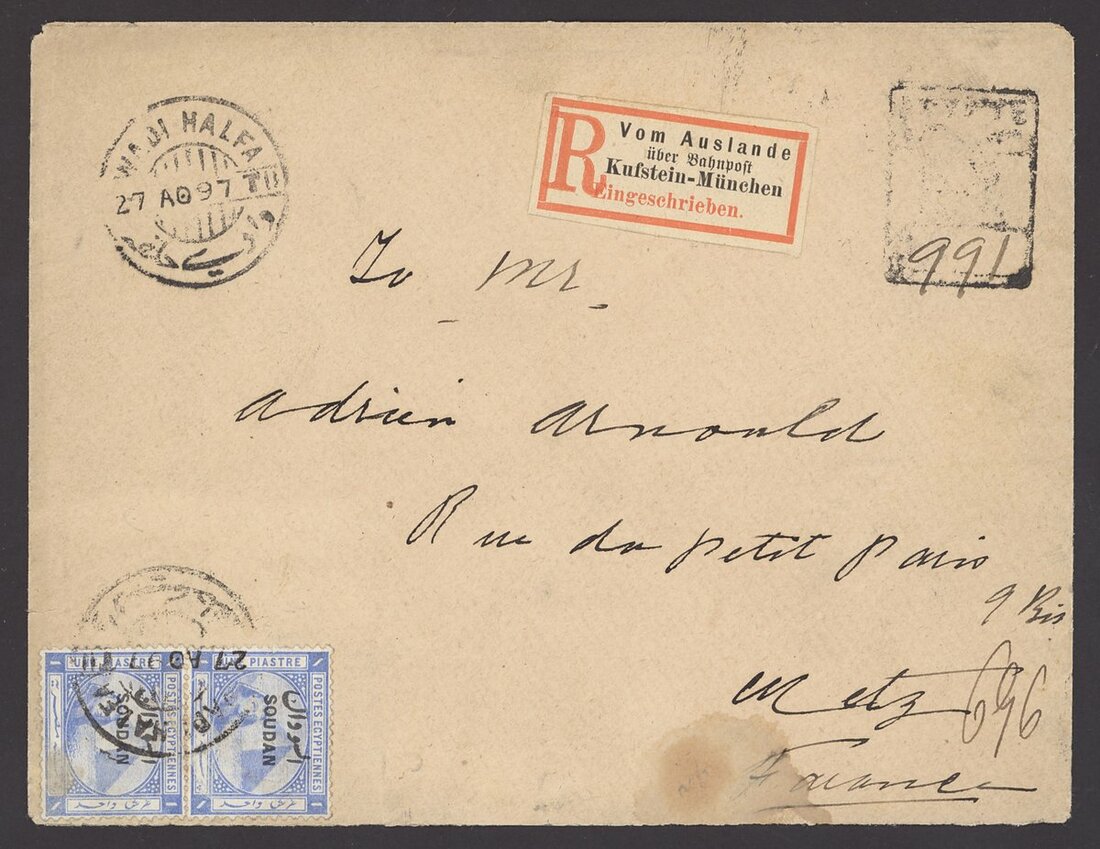 WADI HALFA
27 AO 97 T II
وادي حلفا
R
Vom Auslande
über Bahnpost
Kufstein-München
Eingeschrieben.
991
To Mr.
Adrien Arnould
Rue du petit paris
9 Bis
Metz
696
France
27 AO 97 T II
UNE PIASTRE
POSTES EGYPTIENNES
السودان
SOUDAN
غرش واحد
PIASTRE
POSTES EGYPTIENNES
السودان
SOUDAN
غرش واحد